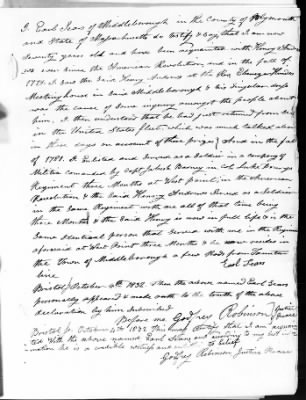 I Earl Sears of Middleborough in the County of Plymouth
and State of Massachusetts do testify & say, that I am now
Seventy years old and have been acquainted with Henry Andrews
ever since the American Revolution, and in the fall of
I saw the said Henry Andrews at the Rev. Ebenezer
Meetinghouse in said Middleborough & his
was the cause of some inquiry amongst the people about
him, I then understood that he had just returned from Sea
in the United States fleet, which was much talked about
in those days on account of those prizes & And in the fall
of 1781. I Enlisted and Served as a Soldier in a company of
Militia comanded by Capt
Regiment three Months at West point, in the American
Revolution & the said Henry Andrews Served as a Soldier
in the same Regiment with me all of that time being
three Months & the said Henry is now in full life & is the
Same identical person that Served with me in the Regiment
aforesaid at West Point three Months & he now resides in
the Town of Middleborough a few Rods from Taunton
line
Earl Sears
Bristol ss October 4th 1832 Then the above named Earl Sears
personally appeared & made oath to the truth of the above
declaration by him Subscribed
Before me Godfrey Robinson Justice Peace
Bristol ss October 4th 1832 This may certify that I am acquain
ted with the above named Earl Sears and according to my best in
mation he is a credible witness and to belief
Godfrey Robinson Justice Peace